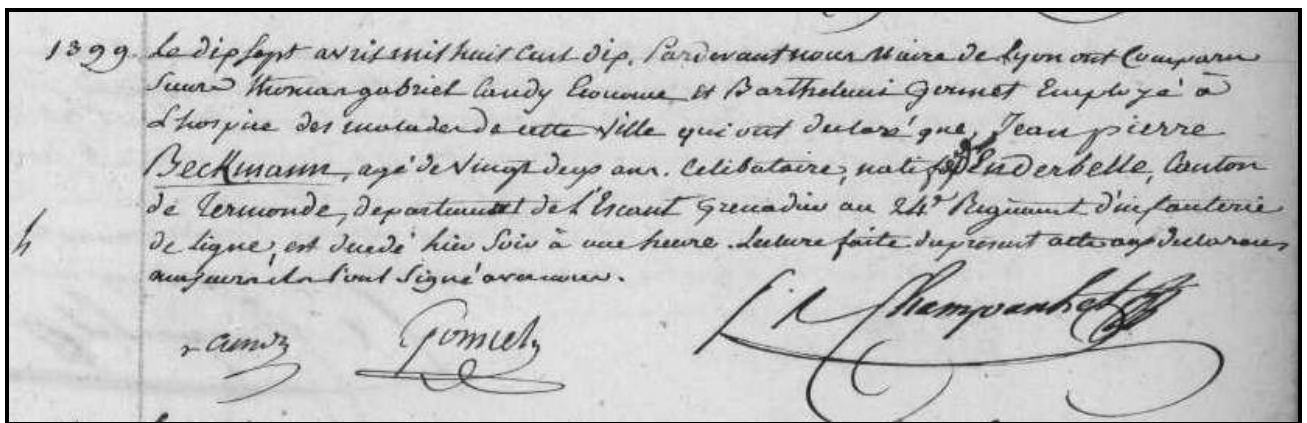 1399. Le dix sept avril mil huit cent dix, Pardevant nous Maire de Lyon ont Comparu
Thomas gabriel Candy Econome, et Barthelemi Gormet Employé à
L'hospice des malades de cette Ville qui ont declaré que, Jean pierre
Beckmann, agé de Vingt deux ans. Celibataire, natif d'Enderbelle, Canton
de Termonde, departement de l'Escaut Grenadier au 24e Regiment d'infanterie
h de Ligne, est decedé hier Soir à une heure. Lecture faite du present acte aux declarans
ils l'ont Signé avec nous.
Candy Gormet Champanhet